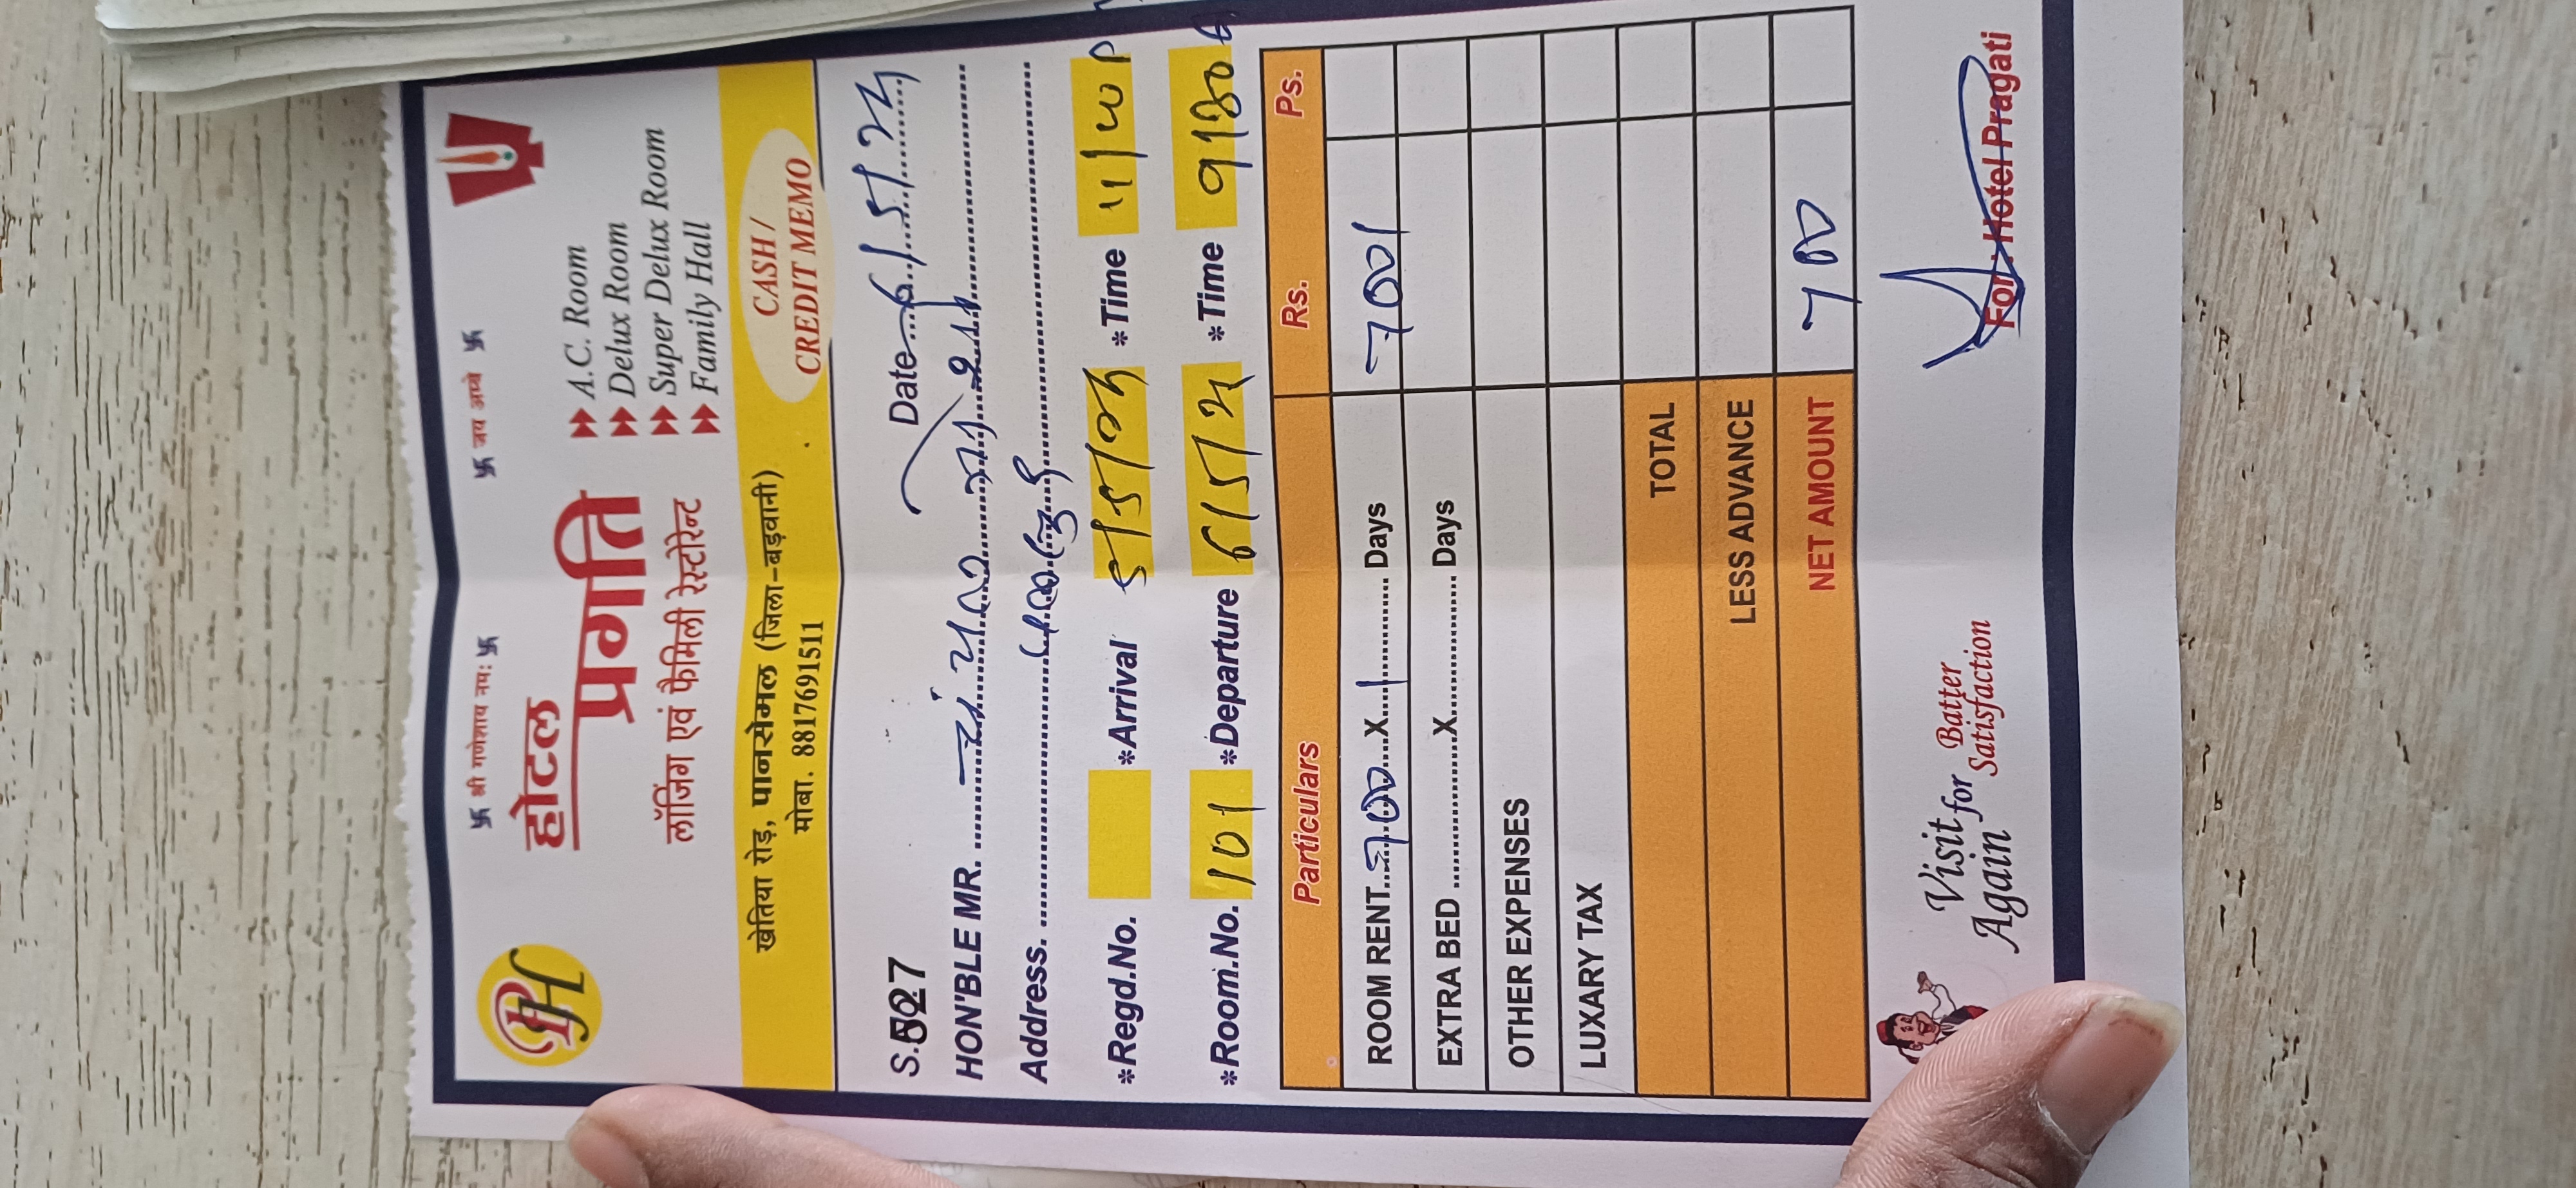 卐 श्री गणेशाय नमः 卐 卐 जय अम्बे 卐
PH
होटल
प्रगति
लॉजिंग एवं फैमिली रेस्टोरेन्ट
A.C. Room
Delux Room
Super Delux Room
Family Hall
खेतिया रोड़, पानसेमल (जिला-बड़वानी)
मोबा. 8817691511
CASH /
CREDIT MEMO
S. 527 Date 6/5/25
HON'BLE MR.
Address.
*Regd.No. *Arrival 5/5/25 *Time 11/40 P
*Room.No. 101 *Departure 6/5/25 *Time 9/30
Particulars Rs. Ps.
ROOM RENT 700 X 1 Days 700/
EXTRA BED X Days
OTHER EXPENSES
LUXARY TAX
TOTAL
LESS ADVANCE
NET AMOUNT 700
Visit for Batter
Again Satisfaction
For : Hotel Pragati